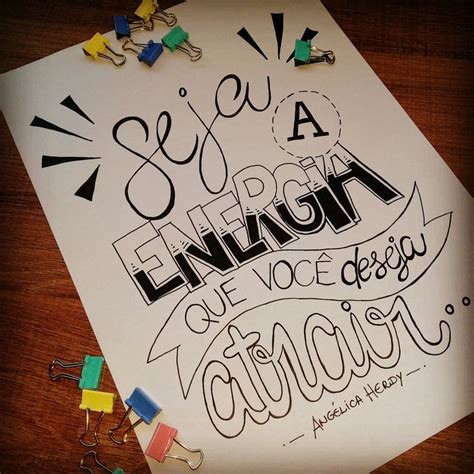 Seja
A
ENERGIA
QUE VOCÊ deseja
atrair...
- ANGÉLICA HERDY -